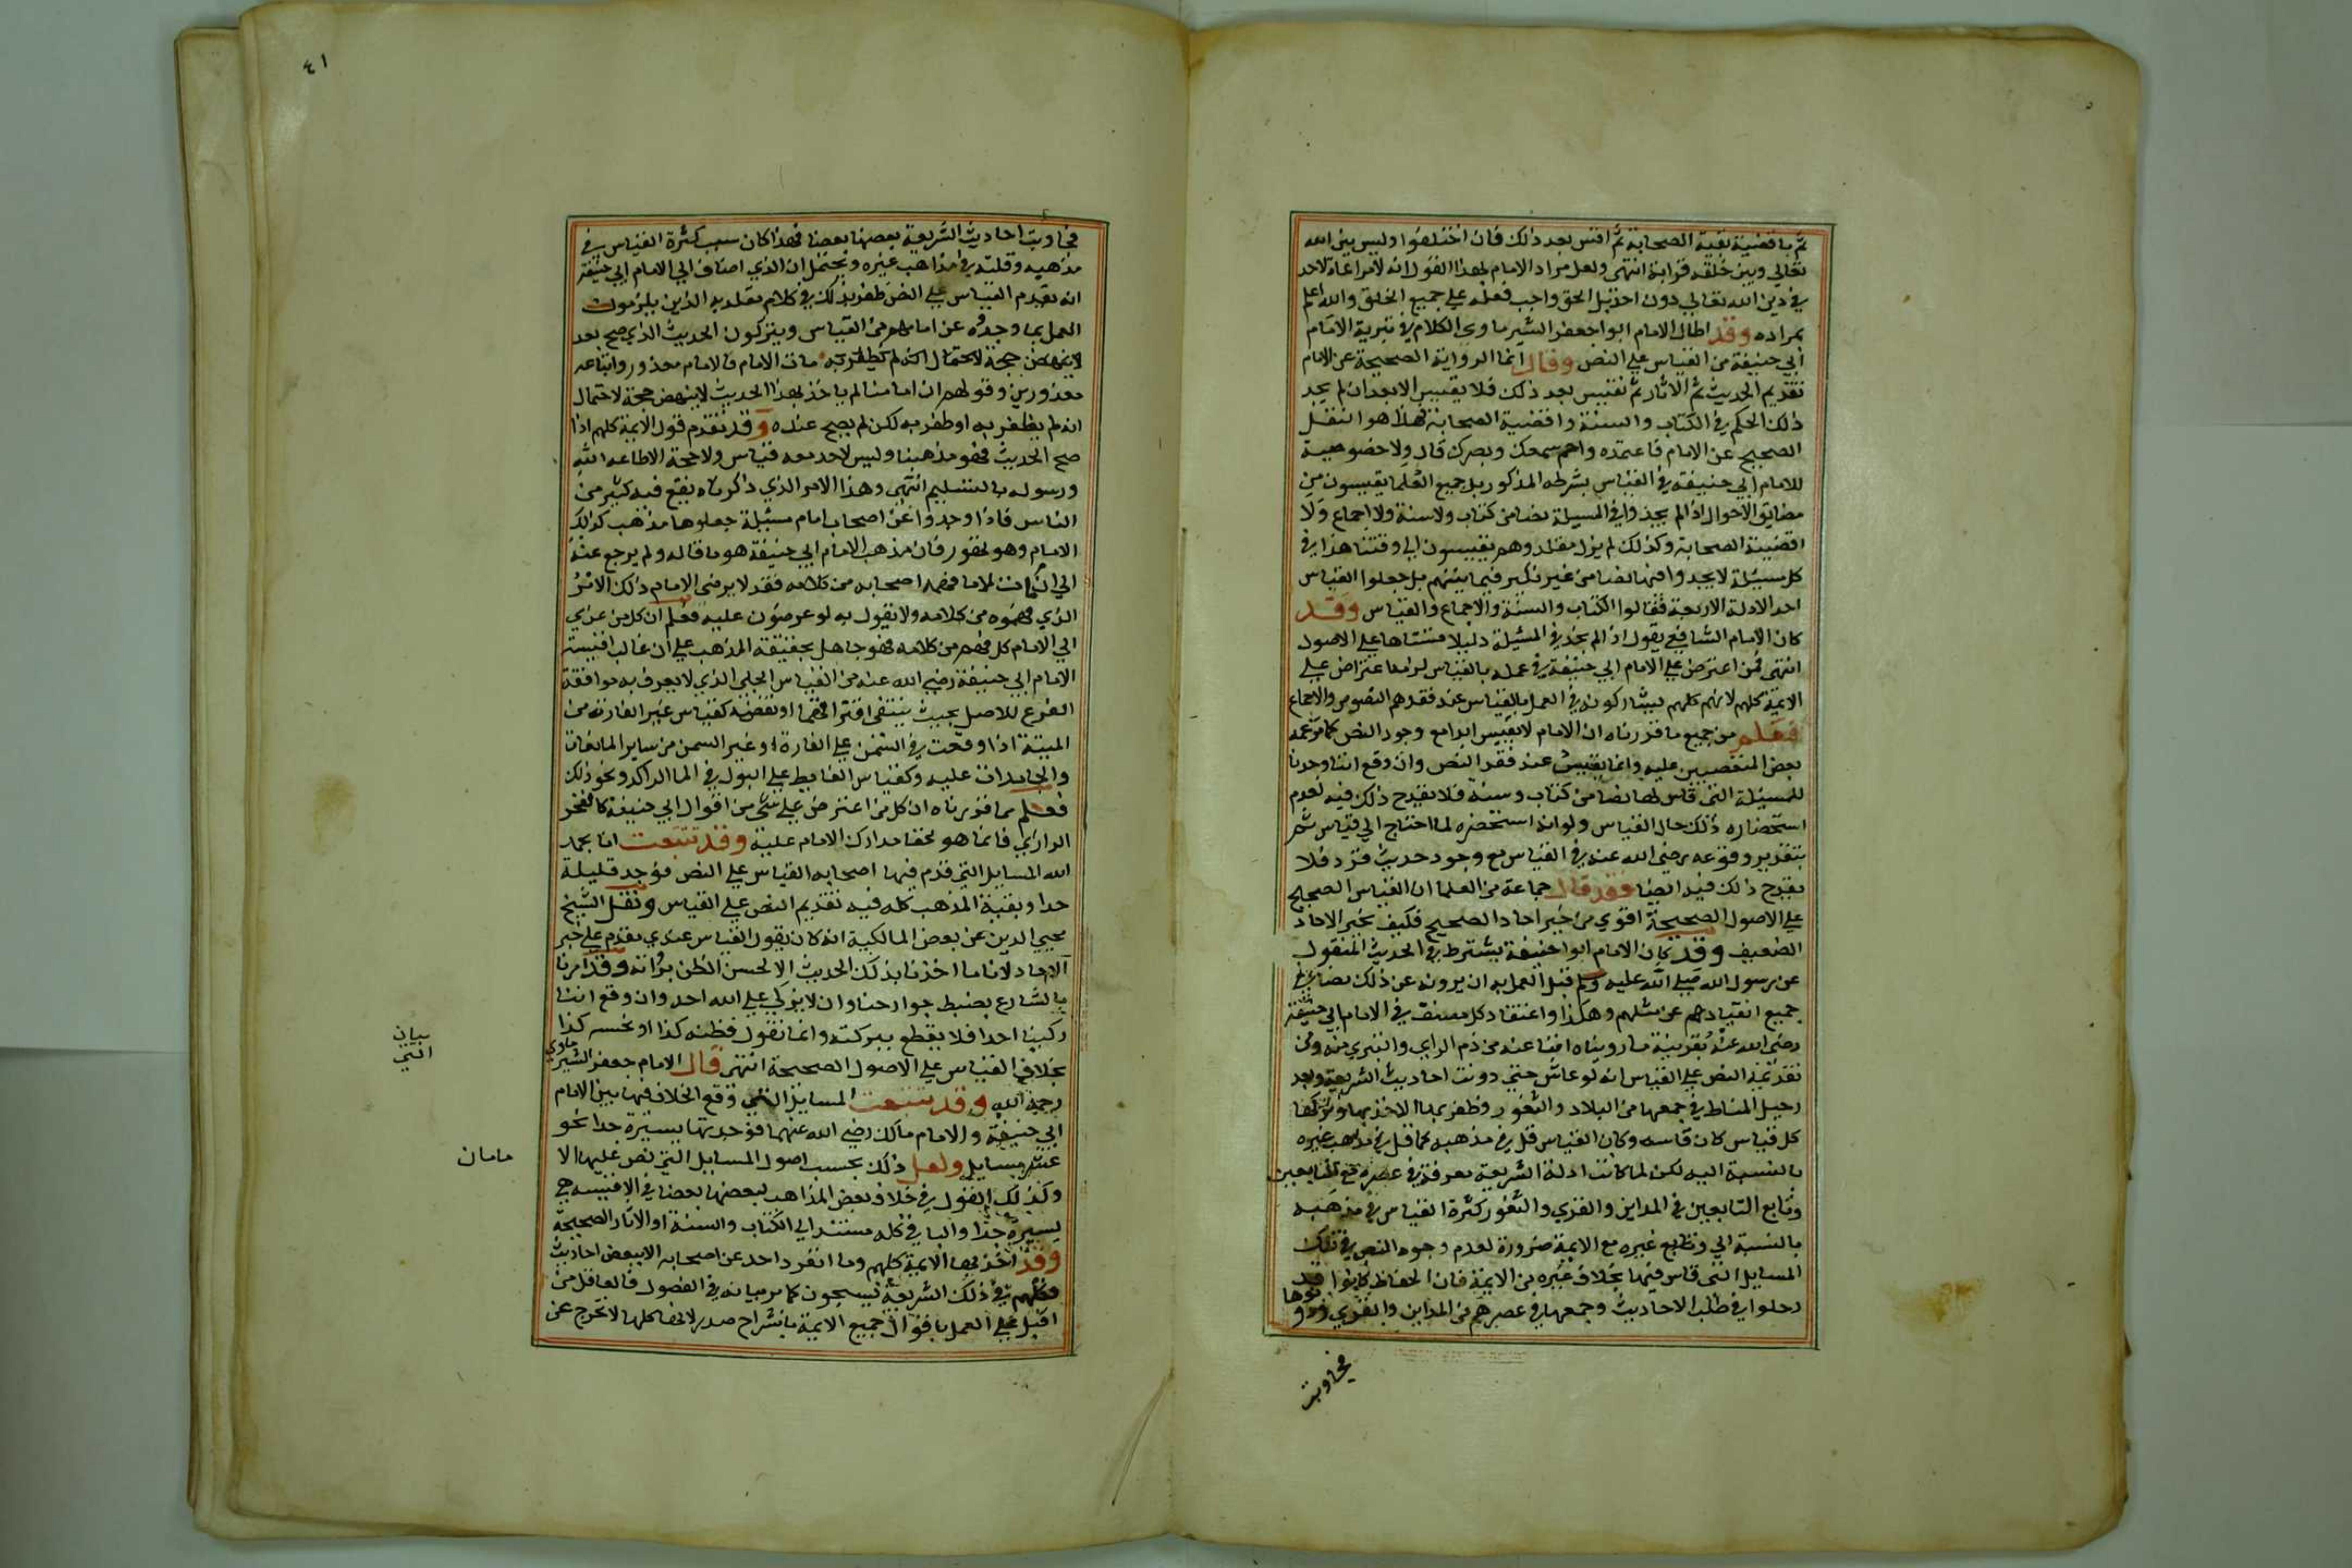 ثم باقضية بقية الصحابة ثم اقيس بعد ذلك فان اختلفوا وليس بين الله
تعالي وبين خلقه قرابة انتهي ولعل مراد الامام بهذا القول انه لامراعاة لاحد
في دين الله تعالي دون احد بل الحق واجب فعله علي جميع الخلق والله اعلم
بمراده وقد اطال الامام ابوا جعفر الشيرماوي الكلام في تبرية الامام
ابي حنيفة من القياس علي النص وقال انما الرواية الصحيحة عن الامام
تقديم الحديث ثم الاثار ثم نقيس بعد ذلك فلا يقيس الا بعد ان لم يجد
ذلك الحكم في الكتاب والسنة واقضية الصحابة فهذا هو النقل
الصحيح عن الامام فاعتمده واحم سمعك وبصرك قال ولا خصوصية
للامام ابي حنيفة في القياس بشرطه المذكور بل جميع العلما يقيسون من
مضايق الاحوال اذا لم يجدوا في المسيلة نصا من كتاب ولا سنة ولا اجماع ولا
اقضية الصحابة وكذلك لم يزل مقلدوهم يقيسون الي وقتنا هذا في
كل مسيلة لا يجدوا فيها نصا من غير نكير فيما بينهم بل جعلوا القياس
احد الادلة الاربعة فقالوا الكتاب والسنة والاجماع والقياس وقد
كان الامام الشافعي يقول اذا لم نجد في المسيلة دليلا قسناها علي الاصول
انتهي فمن اعترض علي الامام ابي حنيفة في عمله بالقياس لزمه الاعتراض علي
الايمة كلهم لانهم كلهم يشاركونه في العمل بالقياس عند فقدهم النصوص والاجماع
فعلم من جميع ما قررناه ان الامام لا يقيس ابدا مع وجود النص كما زعمه
بعض المتعصبين عليه وانما يقيس عند فقد النص وان وقع اننا وجدنا
للمسيلة التي قاس لها نصا من كتاب وسنه فلا يقدح ذلك فيه لعدم
استحضاره ذلك حال القياس ولوانه استحضره لما احتاج الي قياس ثم
بتقدير وقوعه رضي الله عنه في القياس مع وجود حديث فرد فلا
يقدح ذلك فيه ايضا فقد قال جماعة من العلما ان القياس الصحيح
علي الاصول الصحيحة اقوي من خبر احاد الصحيح فكيف بخبر الاحاد
الضعيف وقد كان الامام ابوا حنيفة يشترط في الحديث المنقول
عن رسول الله صلي الله عليه وسلم قبل العمل به ان يرونه عن ذلك
جميع اتقيا دهم عن مثلهم وهكذا واعتقاد كل منصف في الامام ابي حنيفة
رضي الله عنه بقرينة ما رويناه انفا عنه من ذم الراي والتبري منه ومن
تقديمه النص علي القياس انه لو عاش حتي دونت احاديث الشريعة وبعد
رحيل الحفاظ في جمعها من البلاد والثغور وظفر بها لاخذ بها وترك
كل قياس كان قاسه وكان القياس قل في مذهبه كما قل في مذاهب غيره
بالنسبة اليه لكن لما كانت ادلة الشريعة معرفة في عصره مع التابعين
وتابع التابعين في المداين والقري والثغور كثرة القياس في مذهبه
بالنسبة الي وتابع غيره مع الايمة ضرورة لعدم وجود النص في تلك
المسايل التي قاس فيها بخلاف غيره من الايمة فان الحفاظ كانوا قد
رحلوا في طلب الاحاديث وجمعها في عصرهم من المداين والقري ودونوها
فجاوبت
٤١
فجاوبت احاديث الشريعة بعضها بعضا فهذا كان سبب كثرة القياس في
مذهبه وقلته في مذاهب غيره ويحتمل ان الذي اضاف الي الامام ابي حنيفة
انه يقدم القياس علي النص ظفر بذلك في كلام مقلديه الذين يلزمون
العمل بما وجدوه عن امامهم من القياس ويتركون الحديث الذي صح بعد
موت الامام فالامام معذور واتباعه
معذورين وقولهم ان امامنا لم ياخذ بهذا الحديث لا ينهض حجة لاحتمال
انه لم يظفر به او ظفر به لكن لم يصح عنده وقد تقدم قول الايمة كلهم اذا
صح الحديث فهو مذهبنا وليس لاحد معه قياس ولا حجة الا طاعه الله
ورسوله بالتسليم انتهي وهذا الامر الذي ذكرناه يقع فيه كثير من
الناس فاذا وجدوا عن اصحاب امام مسئلة جعلوها مذهب لذلك
الامام وهو تهور فان مذهب الامام ابي حنيفة هو ما قاله ولم يرجع عنه
الي ان مات لا ما فهمه اصحابه من كلامه فقد لا يرضي الامام ذلك الامر
الذي فهموه من كلامه ولا يقول به لو عرضون عليه فعلم ان كل من عزي
الي الامام كل ما فهم من كلامه فهو جاهل بحقيقة المذهب علي ان غالب اقيسة
الامام ابي حنيفة رضي الله عنه من القياس الجلي الذي لا يعرف به موافقة
الفرع للاصل بحيث ينتفي افتراقهما او نقضه كقياس غير الفارة من
الميتة اذا وقعت في السمن علي الفارة وغير السمن من ساير المايعات
والجامدات عليه وكقياس الغايط علي البول في الما الراكد ونحو ذلك
فعلم مما قررناه ان كل من اعترض علي شي من اقوال ابي حنيفة كالفخر
الرازي فانما هو لخفا مدارك الامام عليه وقد تتبعت انا بحمد
الله المسايل التي قدم فيها اصحابه القياس علي النص فوجد قليلة
جدا وبقية المذهب كله فيه تقديم النص علي القياس ونقل الشيخ
محيي الدين عن بعض المالكية انه كان يقول القياس عندي مقدم علي خبر
الاحاد لانا ما اخذنا بذلك الحديث الا لحسن الظن برواته وقد امرنا
بالشارع بضبط جوارحنا وان لا يزكي علي الله احد وان وقع اننا
زكينا احدا فلا يقطع ببركته وانما نقول نظنه كذا او نحسبه كذا
بخلاف القياس علي الاصول الصحيحة انتهي قال الامام جعفر الشيرماوي
رحمه الله وقد تتبعت المسايل التي وقع الخلاف فيها بين الامام
ابي حنيفة والامام مالك رضي الله عنهما فوجدتها يسيرة جدا نحو
عشر مسايل ولعل ذلك بحسب اصول المسايل التي نص عليها الا
وكذلك القول في خلاف بعض المذاهب لبعضها بعضا في الاقيسه هي
يسيرة جدا والباقي كله مستند الي الكتاب والسنة او الاثار الصحيحة
وقد اخذ بها الايمة كلهم وما انفرد احد عن اصحابه الا ببعض احاديث
فكلهم في ذلك الشريعة يسبحون كما مر بيانه في الفصول فالعاقل من
اقبل علي العمل باقوال جميع الايمة بانشراح صدر لانها كلها لا تخرج عن
بيان
التي
مامان